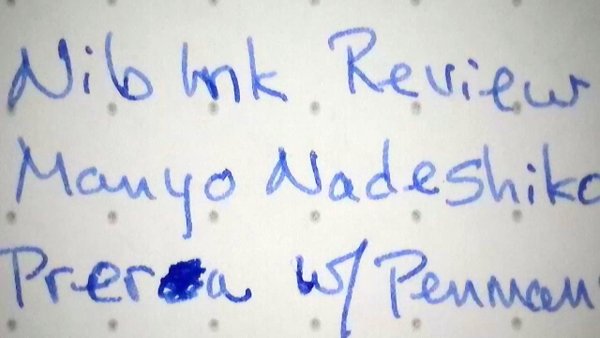 Nib Ink Review
Manyo Nadeshiko
Prera w/ Penman